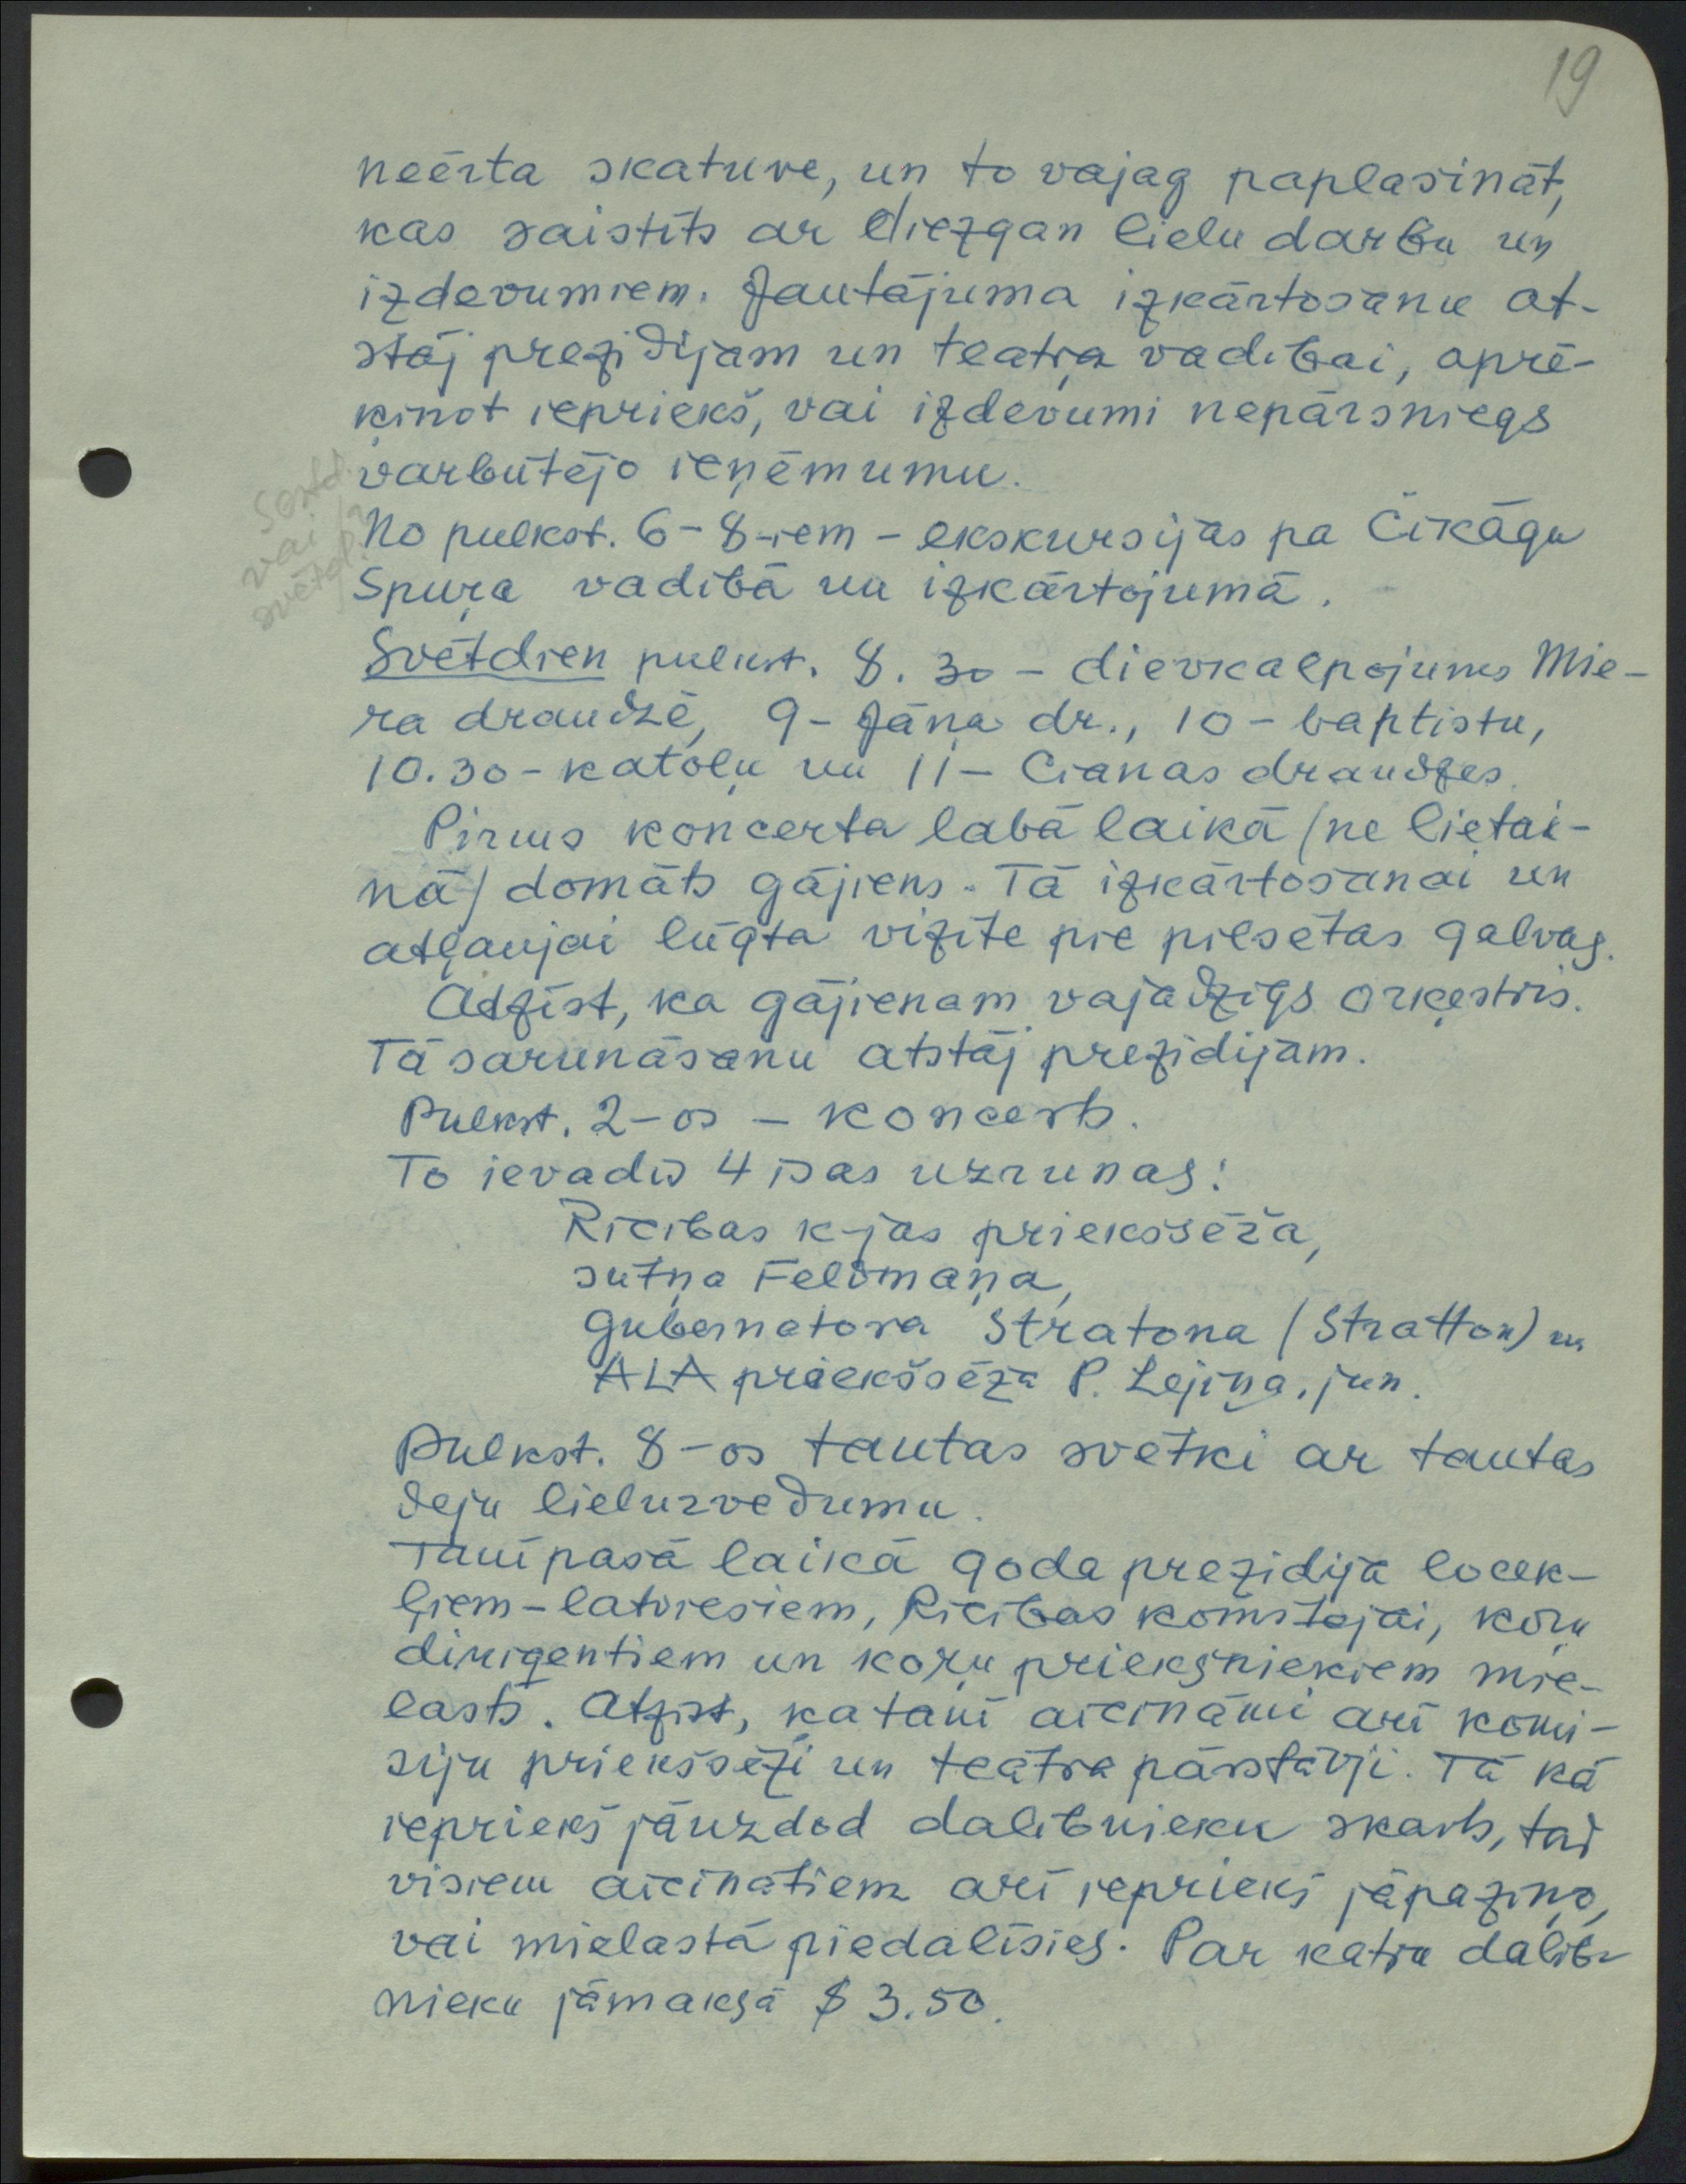 19
neērta skatuve, un to vajag paplasināt,
kas saistīts ar diezgan lielu darbu un
izdevumiem. Jautājuma izkārtosanu at-
stāj prezidijam un teatŗa vadibai, aprē-
ķinot iepriekš, vai izdevumi nepārsniegs
varbūtējo ieņēmumu.
sestd.
vai
svētd.
No pulkst. 6-8-iem - ekskursijas pa Čikāgu
Spuŗa vadībā un izkārtojumā.
Svētdien pulkst. 8.30 - dievkalpojums Mie-
ra draudzē, 9- Jāņa dr., 10 - baptistu,
10.30 - katoļu un 11 - Cianas draudzes.
Pirms koncerta labā laikā (ne lietai-
nā) domāts gājiens. Tā izkārtosanai un
atļaujai lūgta vizīte pie pilsētas galvas.
Atzīst, ka gājienam vajadzīgs orķestris.
Tā sarunāsanu atstāj prezidijam.
Pulkst. 2-os - koncerts.
To ievadīs 4 īsas uzrunas:
Rīcibas k-jas priekssēža,
sūtņa Feldmaņa,
gubernatora Stratona (Stratton) un
ALA priekšsēža P. Lejiņa, jun.
Pulkst. 8-os tautas svētki ar tautas
deju lieluzvedumu.
Tanī pasā laikā goda prezidija locek-
ļiem-latviesiem, Rīcibas komitejai, koŗu
diriģentiem un koŗu priekšniekiem mie-
lasts. Atzīst, ka tanī aicināmi arī komi-
siju priekssēži un teātra pārstāvji. Tā kā
iepriekš jāuzdod dalībnieku skaits, tad
visiem aicinātiem arī iepriekš jāpaziņo,
vai mielastā piedalīsies. Par katru dalīb-
nieku jāmaksā $ 3.50.